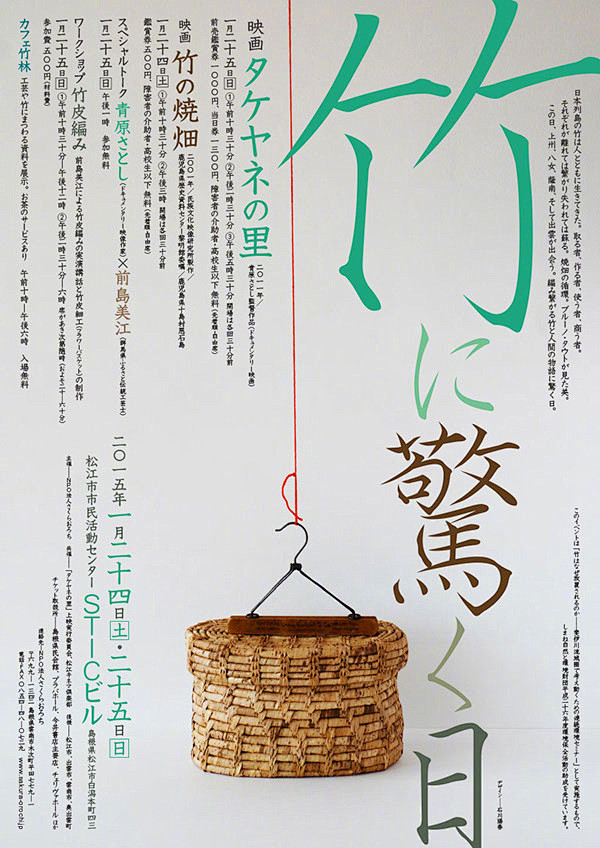 竹に驚く日
日本列島の竹は人とともに生きてきた。取る者、作る者、使う者、商う者。
それぞれが離れては繋がり失われては蘇る。焼畑の循環。ブルーノ・タウトが見た美。
この日、上州、八女、薩南、そして出雲が出会う。編み繋がる竹と人間の物語に驚く日。
映画 タケヤネの里
二〇一一年／
青原さとし監督作品（ドキュメンタリー映画）
一月二十五日日 ①午前十時三十分 ②午後一時三十分 ③午後五時三十分 開場は各回三十分前
前売鑑賞券一〇〇〇円、当日券一三〇〇円、障害者の介助者・高校生以下無料（先着順・自由席）
映画 竹の焼畑
二〇〇一年／民族文化映像研究所製作／
鹿児島県歴史資料センター黎明館委嘱／鹿児島県十島村悪石島
一月二十四日土 ①午前十時三十分 ②午後三時 開場は各回三十分前
鑑賞券五〇〇円、障害者の介助者・高校生以下無料（先着順・自由席）
スペシャルトーク 青原さとし（ドキュメンタリー映像作家）×前島美江（群馬県ふるさと伝統工芸士）
一月二十五日日 午後一時 参加無料
ワークショップ 竹皮編み 前島美江による竹皮編みの実演講話と竹皮細工（フラワーバスケット）の制作
一月二十五日日 ①午前十時三十分—午後十二時 ②午後一時三十分—六時 席があき次第随時（およそ二十—六十分）
参加費 五〇〇円（材料費）
カフェ竹林 工芸や竹にまつわる資料を展示。お茶のサービスあり 午前十時—午後六時 入場無料
二〇一五年一月二十四日土・二十五日日
松江市市民活動センター STICビル 島根県松江市白潟本町四三
主催——NPO法人さくらおろち 共催——「タケヤネの里」上映実行委員会、松江キネマ倶楽部 後援——松江市、出雲市、雲南市、奥出雲町
チケット取扱所——島根県民会館、プラバホール、今井書店主要店、チェリヴァホール ほか
連絡先——NPO法人さくらおろち
〒六九九—一三四二 島根県雲南市木次町平田七七九—一
電話・FAX〇八五四—四八—〇七二九 www.sakuraorochi.jp
このイベントは「竹はなぜ放置されるのか——斐伊川流域圏で考え動くための連続環境セミナー」として実施するもので、
しまね自然と環境財団平成二十六年度環境保全活動の助成を受けています。
デザイン——石川陽春